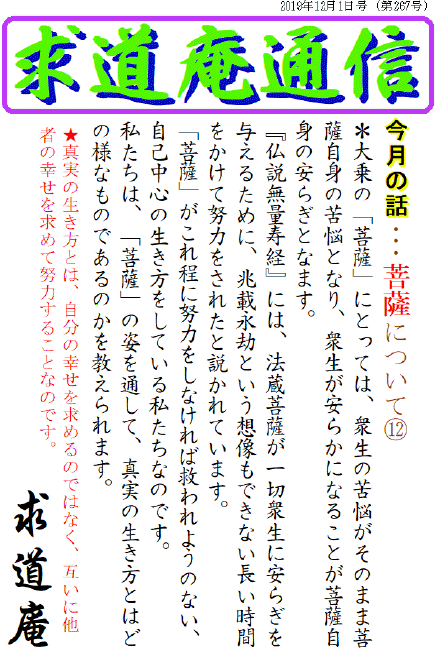 2019年12月1日号 (第267号)
求道庵通信
今月の話…菩薩について⑫
＊大乗の「菩薩」にとっては、衆生の苦悩がそのまま菩
薩自身の苦悩となり、衆生が安らかになることが菩薩自
身の安らぎとなます。
『仏説無量寿経』には、法蔵菩薩が一切衆生に安らぎを
与えるために、兆載永劫という想像もできない長い時間
をかけて努力をされたと説かれています。
「菩薩」がこれ程に努力をしなければ救われようのない、
自己中心の生き方をしている私たちなのです。
私たちは、「菩薩」の姿を通して、真実の生き方とはど
の様なものであるのかを教えられます。
★真実の生き方とは、自分の幸せを求めるのではなく、互いに他
者の幸せを求めて努力することなのです。
求道庵